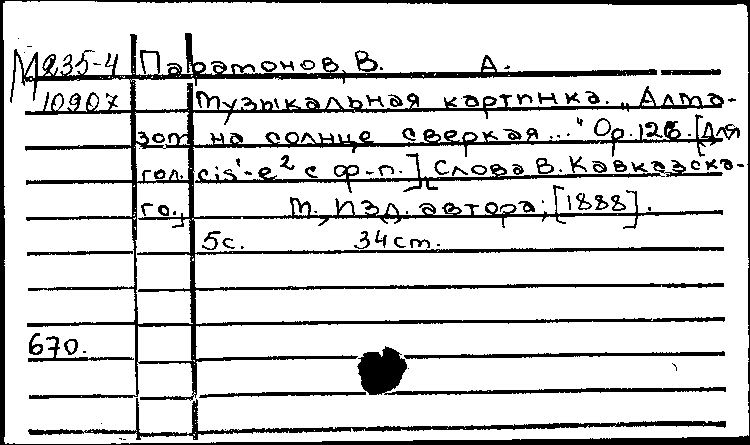 М 235-4 Паратонов, В. А.
10907 Музыкальная картинка. „Алма-
зом на солнце сверкая..." Ор. 126. [Для
гол. cis'-e² с ф-п.] [Слова В. Кавказска-
го.] М., Изд. автора, [1888].
5с. 34 cm.
670.